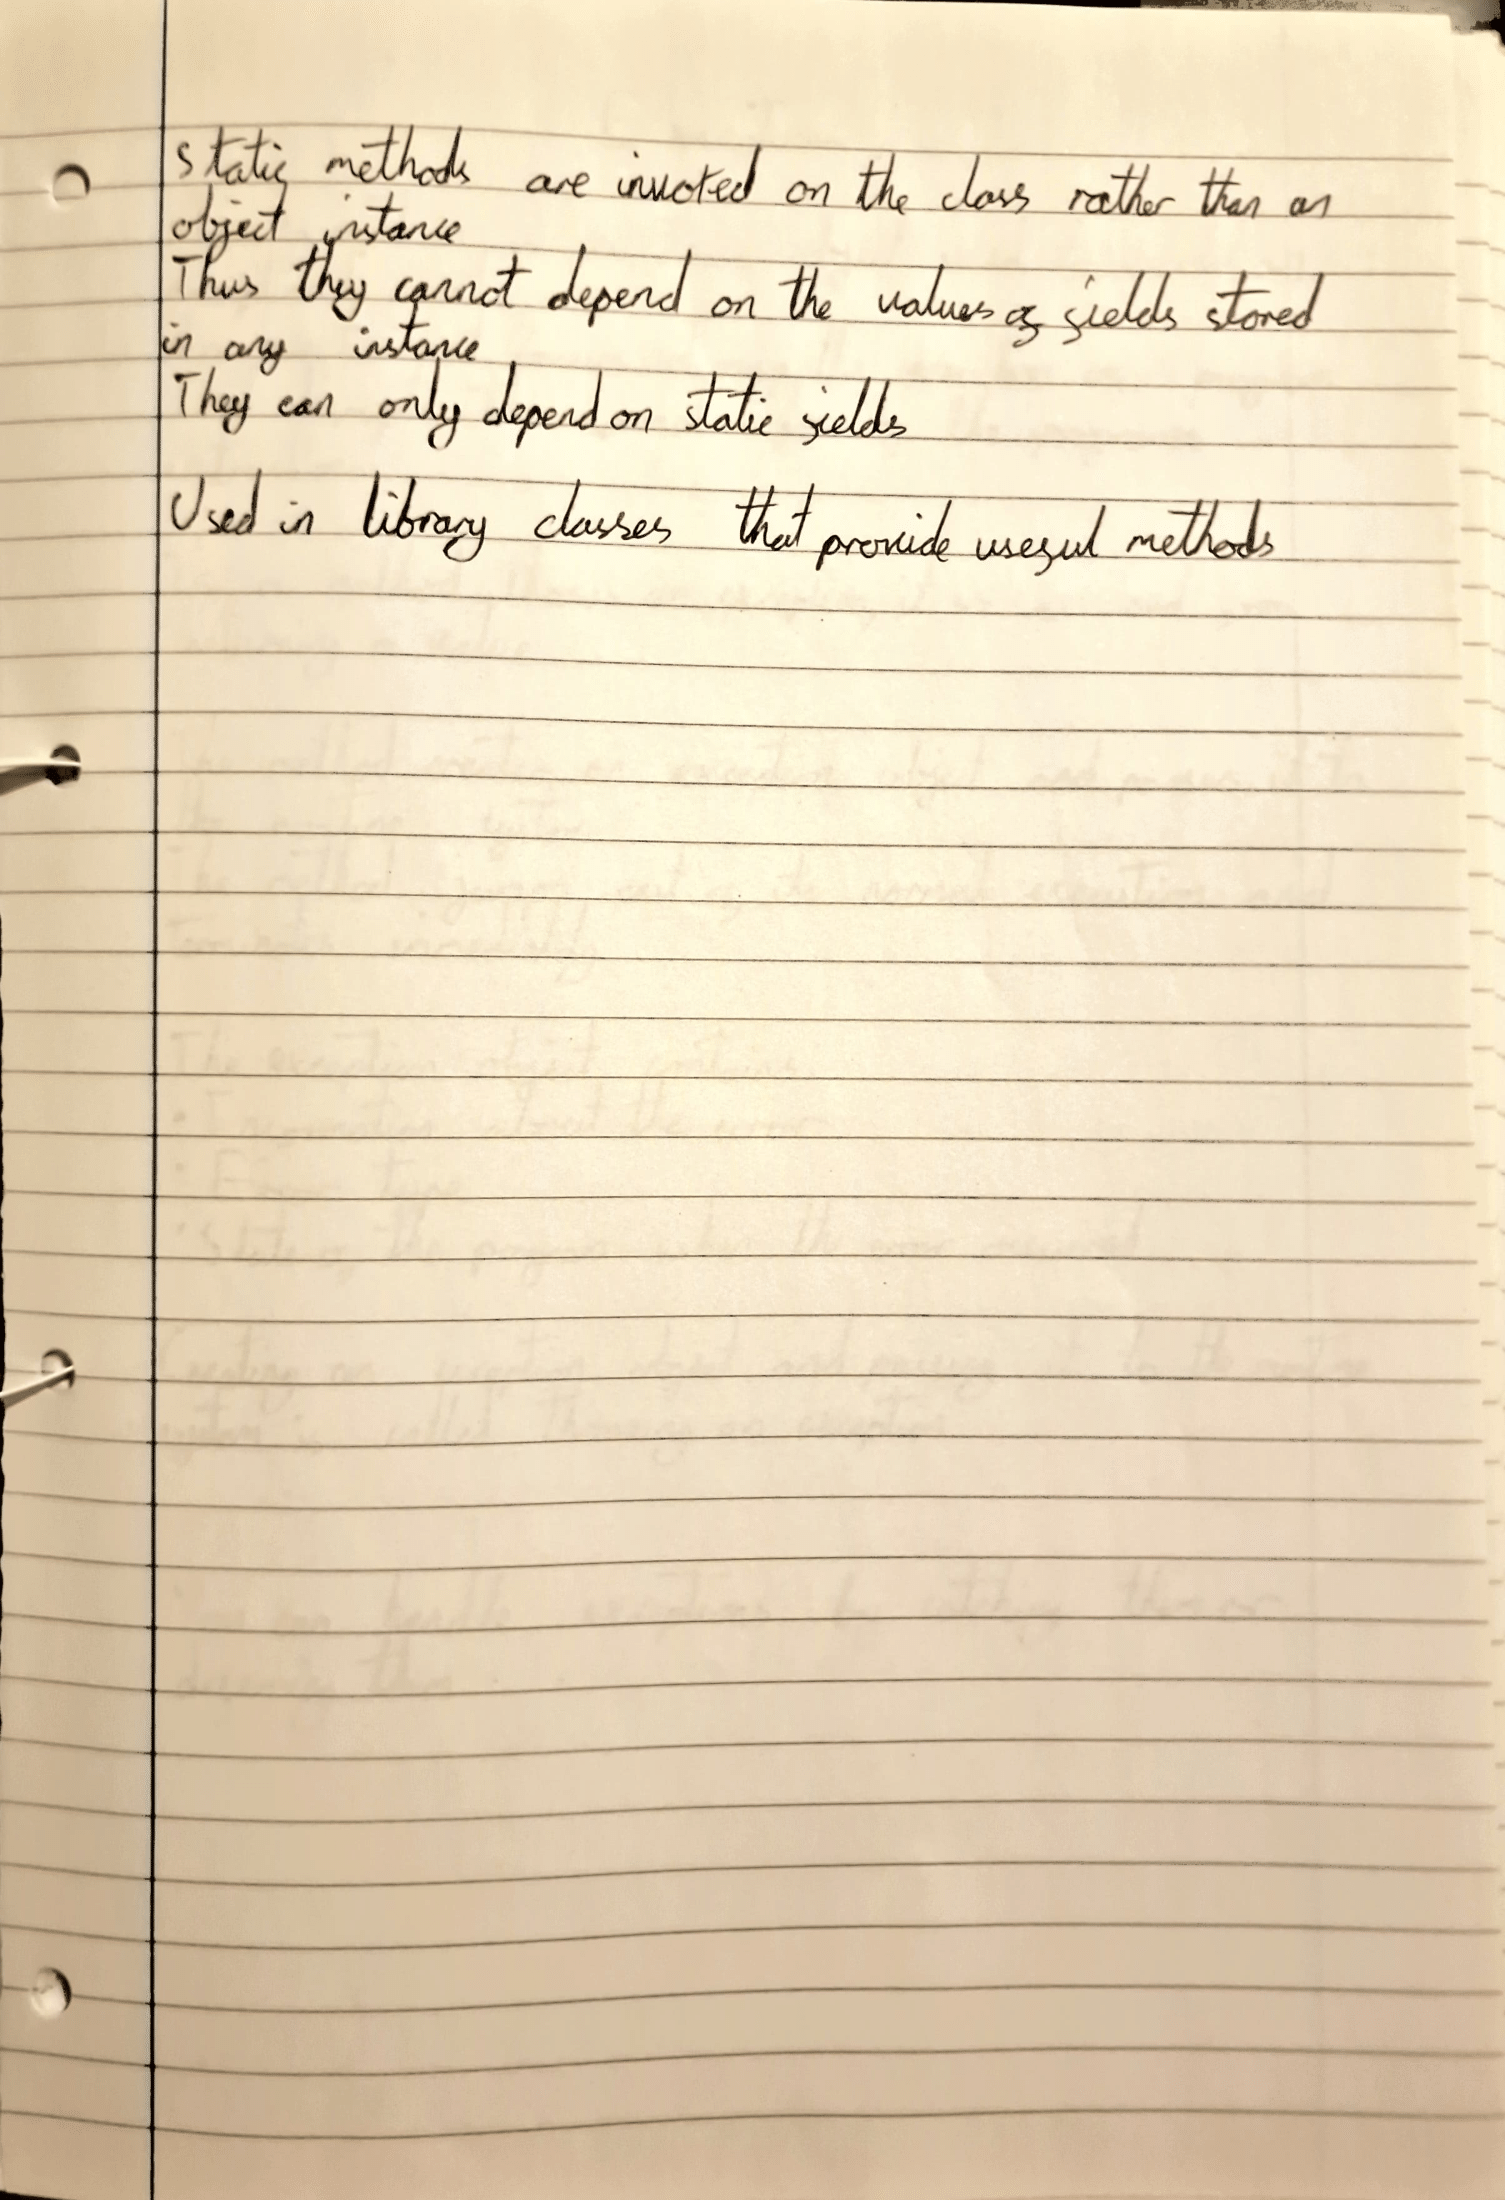 Static methods are invoked on the class rather than an
object instance
Thus they cannot depend on the values of fields stored
in any instance
They can only depend on static fields
Used in library classes that provide useful methods